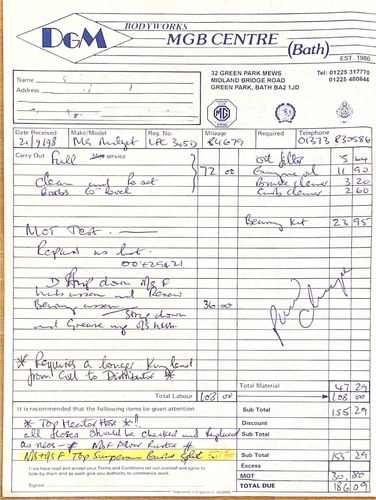 DGM BODYWORKS
MGB CENTRE (Bath)
EST. 1980
32 GREEN PARK MEWS
MIDLAND BRIDGE ROAD
GREEN PARK, BATH BA2 1JD
Tel: 01225 317770
01225 480644
Name
Address
MG
Date Received Make/Model Reg. No. Mileage Required Telephone
21/9/98 MG Midget 84679 01373 830586
Carry Out Full service 72 00
Oil filter 5 64
Engine oil 11 90
Clean and Reset 3 20
to level 2 60
Bearing Kit 23 95
MOT Test.
Repairs as list.
Strip down N/S F
Hub assem and Renew
Bearing assem 36 00
Strip down
and Grease
* Requires a longer King lead
from Coil to Distributor *
Total Material 47 29
Total Labour 108 00 108 00
It is recommended that the following items be given attention
Sub Total 155 29
* Top Heater Hose *!!
all Hoses should be checked and Replaced
as necs
N/S F Top Suspension Bush Split
Discount
Sub Total 155 29
Excess
MOT 30.80
TOTAL DUE 186 09
I/we have read and accept your Terms and Conditions set out overleaf and agree to
bide by them and as such give you authority to commence work.
Signed